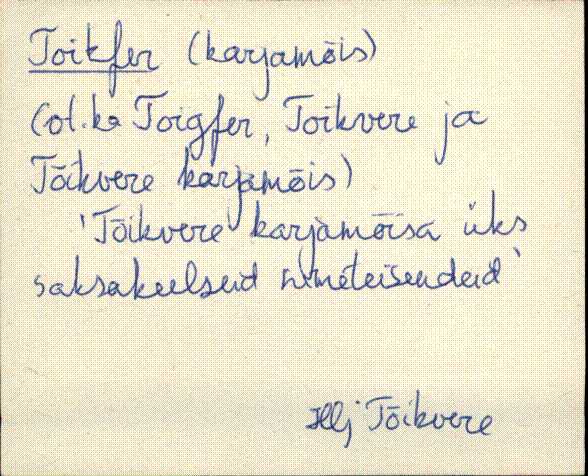 Toikfer (karjamõis)
(ol. ka Toigfer, Toikvere ja
Tõikvere karjamõis)
'Tõikvere karjamõisa üks
saksakeelseid nimeteisendeid'
Hlj Tõikvere